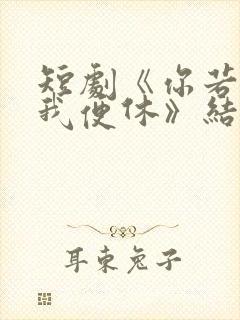 短劇《你若
我便休》結
耳東兔子